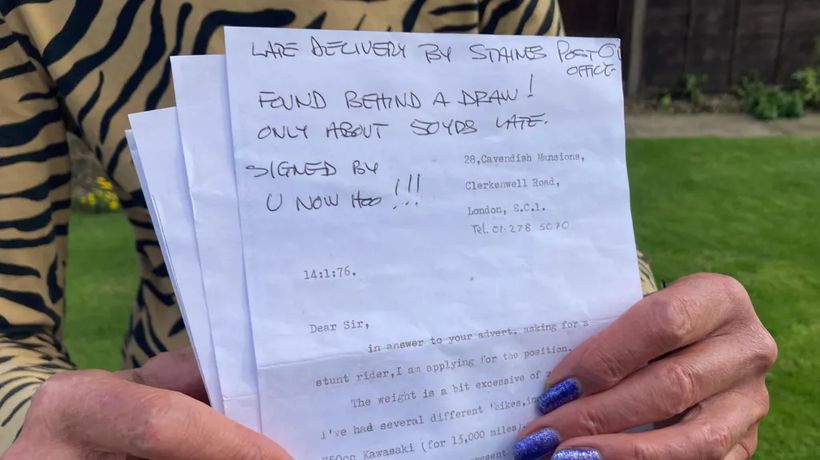 LATE DELIVERY BY STAINES POST O
OFFICE-
FOUND BEHIND A DRAW!
ONLY ABOUT 50YDS LATE.
SIGNED BY
U NOW HOO !!!
28,Cavendish Mansions,
Clerkenwell Road,
London, E.C.1.
Tel. 01-278 5070
14:1:76.
Dear Sir,
in answer to your advert. asking for a
stunt rider,I am applying for the position.
The weight is a bit excessive of
I've had several different 'bikes,
750cc Kawasaki (for 15,000 miles),